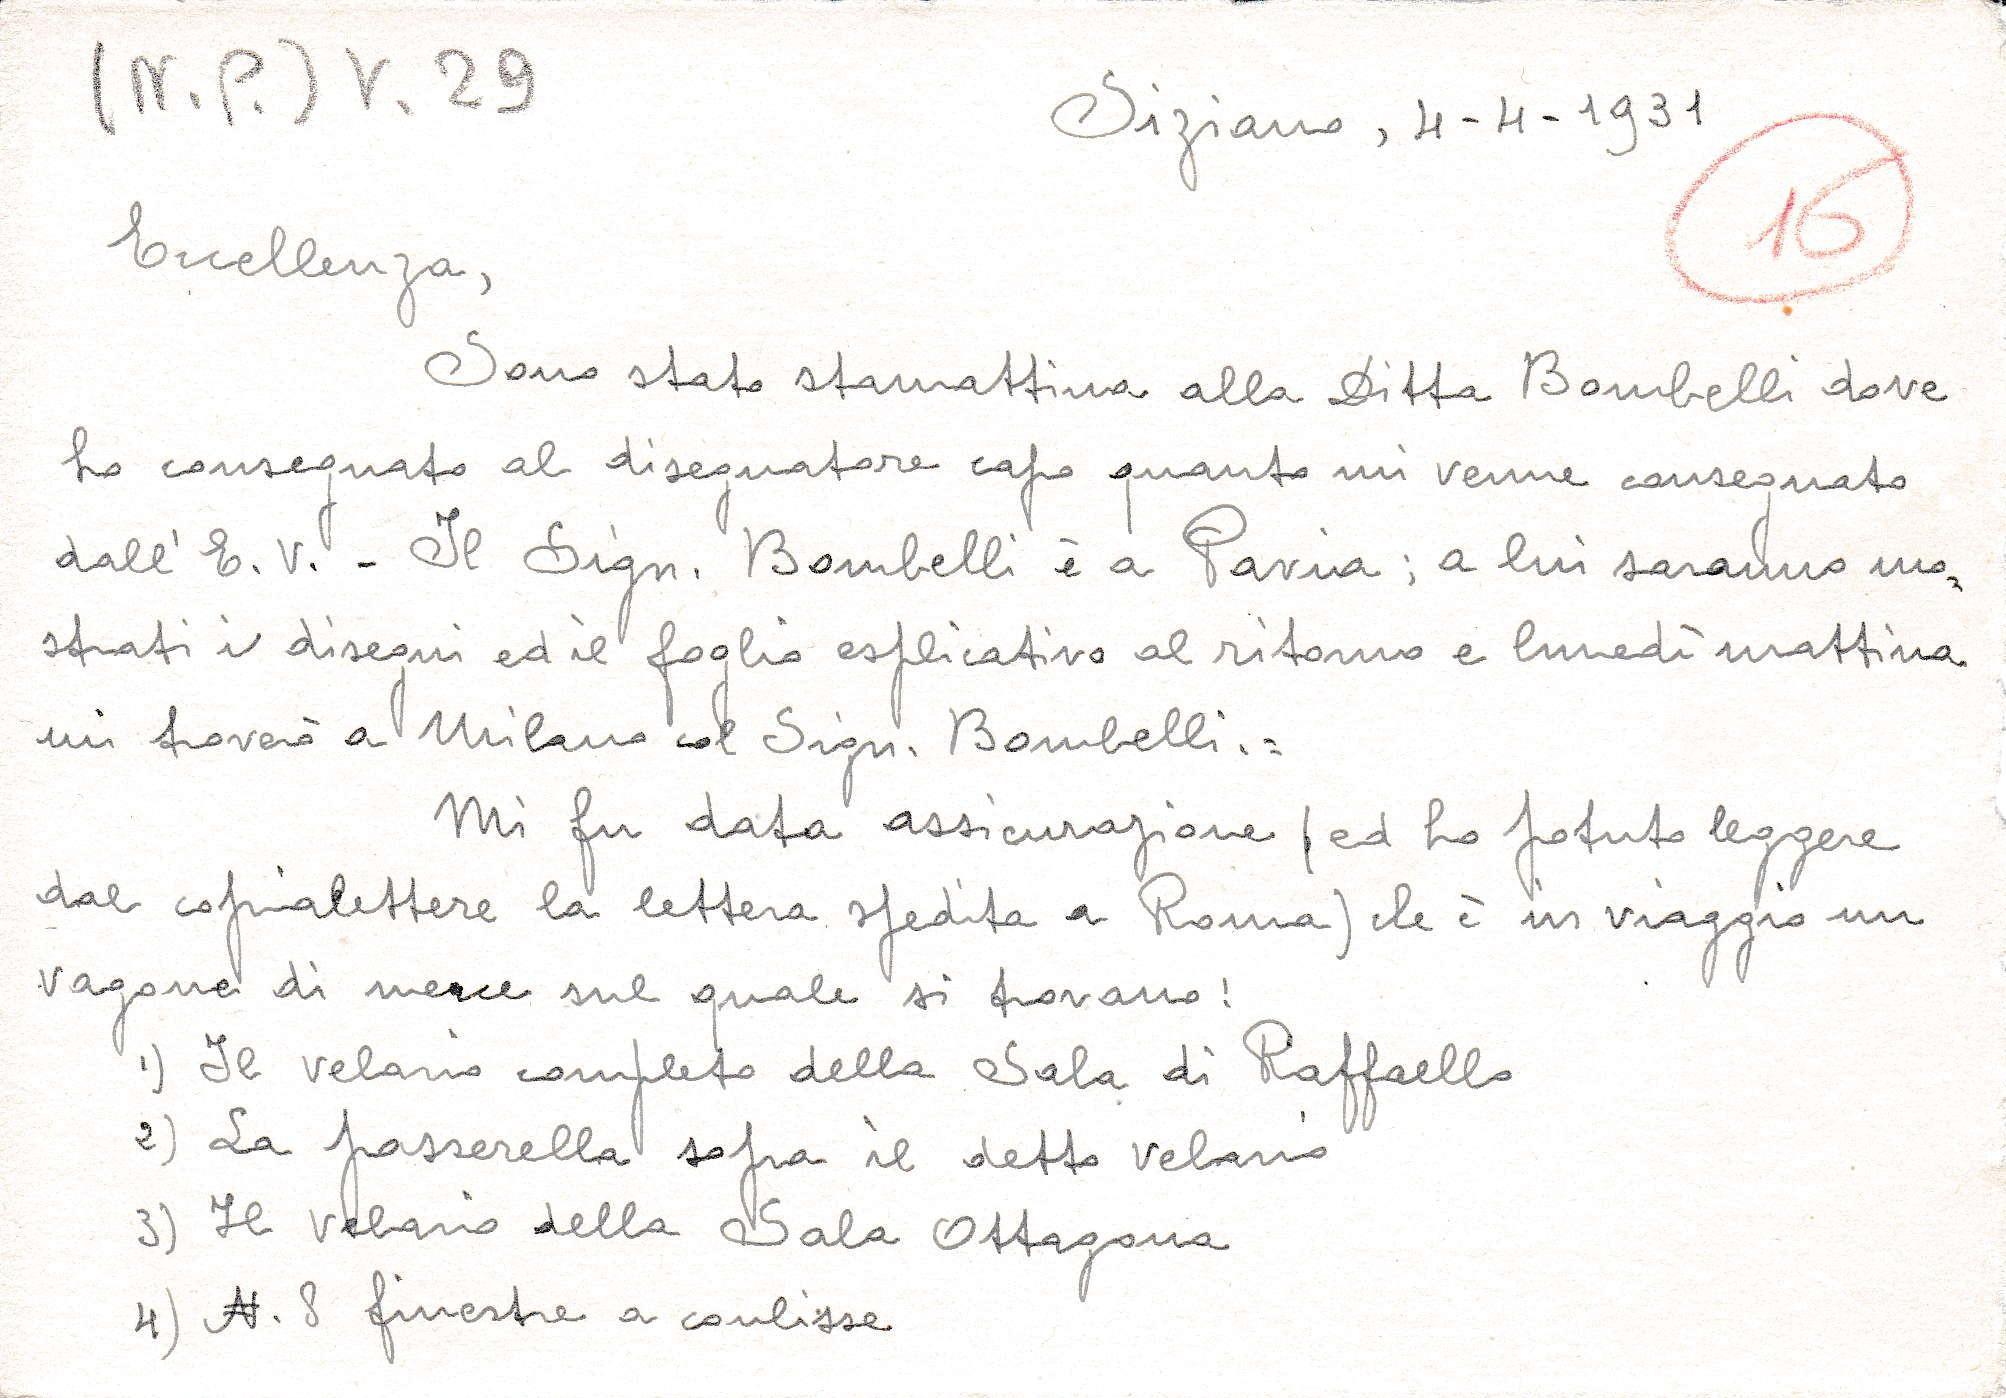 (N.P.) V. 29
Siziano, 4-4-1931
16
Eccellenza,
Sono stato stamattina alla Ditta Bombelli dove
ho consegnato al disegnatore capo quanto mi venne consegnato
dall'E.V. - Il Sign. Bombelli è a Pavia; a lui saranno mo=
strati i disegni ed il foglio esplicativo al ritorno e lunedì mattina
mi troverò a Milano col Sign. Bombelli.=
Mi fu data assicurazione (ed ho potuto leggere
dal copialettere la lettera spedita a Roma) che è in viaggio un
vagone di merce sul quale si trovano:
1) Il velario completo della Sala di Raffaello
2) La passerella sopra il detto velario
3) Il velario della Sala Ottagona
4) N. 8 finestre a coulisse